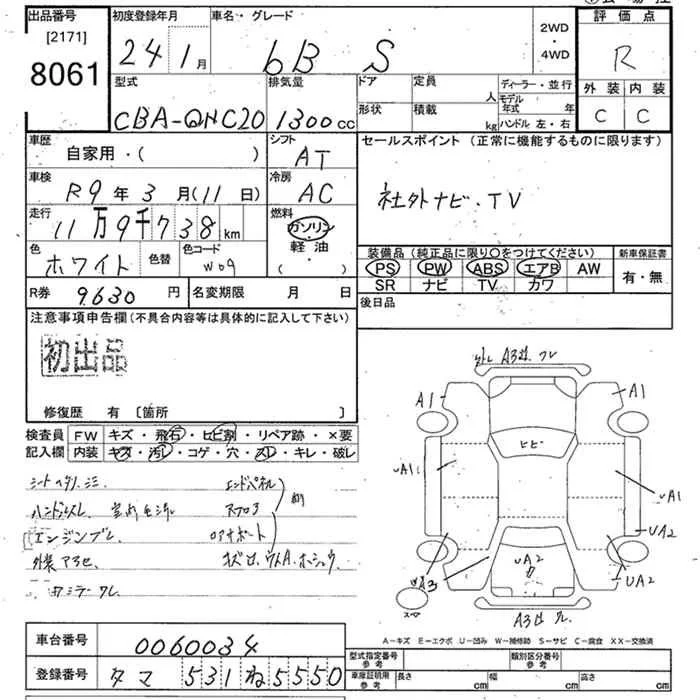 出品番号
[2171]
8061
初度登録年月
24 1月
車名・グレード
bB S
2WD
・
4WD
評価点
R
外装 内装
C C
型式
CBA-QNC20
排気量
1300cc
ドア
形状
定員
人
積載
kg
ディーラー・並行
モデル年式 年
ハンドル 左・右
車歴
自家用・( )
シフト
AT
セールスポイント (正常に機能するものに限ります)
社外ナビ・TV
車検
R9年3月(11日)
冷房
AC
走行
11万9千738km
燃料
ガソリン
・
軽油
( )
色
ホワイト
色替
色コード
W09
装備品 (純正品に限り○をつけてください)
PS PW ABS エアB AW
SR ナビ TV カワ
新車保証書
有・無
R券
9,630円
名変期限 月 日
後日品
注意事項申告欄(不具合内容等は具体的に記入して下さい)
初出品
修復歴 有 [箇所 ]
検査員
記入欄
FW キズ・飛石・ヒビ割・リペア跡・×要
内装 キズ・汚レ・コゲ・穴・スレ・キレ・破レ
ハンドルスレ
エンドパネル
エンジンブレ
A1
A1
ヒビ
UA1
UA1
UA2
UA2
UA2
UA3
A-キズ E-エクボ U-凹み W-補修跡 S-サビ C-腐食 XX-交換済
車台番号
0060034
登録番号
タマ 531 ね 5550
型式指定番号
参考
類別区分番号
参考
車庫証明用
参考
長さ cm
幅 cm
高さ cm